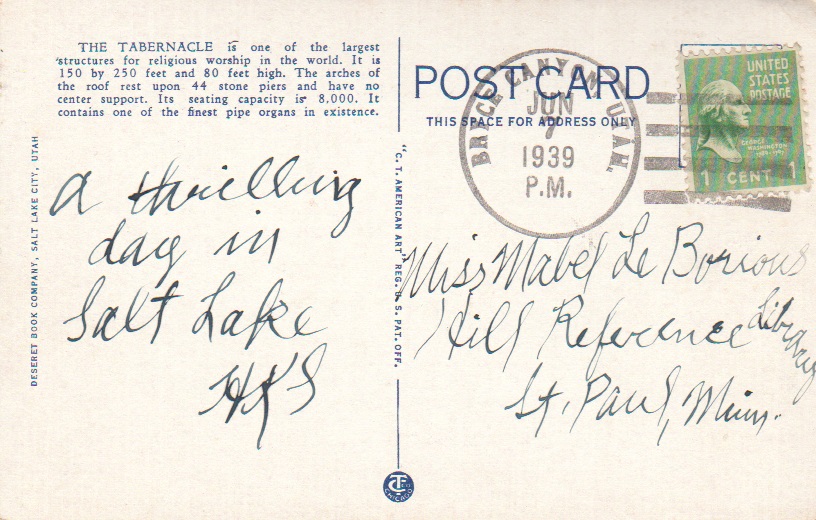 THE TABERNACLE is one of the largest
structures for religious worship in the world. It is
150 by 250 feet and 80 feet high. The arches of
the roof rest upon 44 stone piers and have no
center support. Its seating capacity is 8,000. It
contains one of the finest pipe organs in existence.
DESERET BOOK COMPANY, SALT LAKE CITY, UTAH
A thrilling
day in
Salt Lake
HKS
"C. T. AMERICAN ART" REG. U. S. PAT. OFF.
CT CO
CHICAGO
POST CARD
THIS SPACE FOR ADDRESS ONLY
BRYCE CANYON, UTAH.
JUN
7
1939
P.M.
UNITED
STATES
POSTAGE
GEORGE
WASHINGTON
1789-1797
1 CENT 1
Miss Mabel Le Borious
Hill Reference Library
St. Paul, Minn.